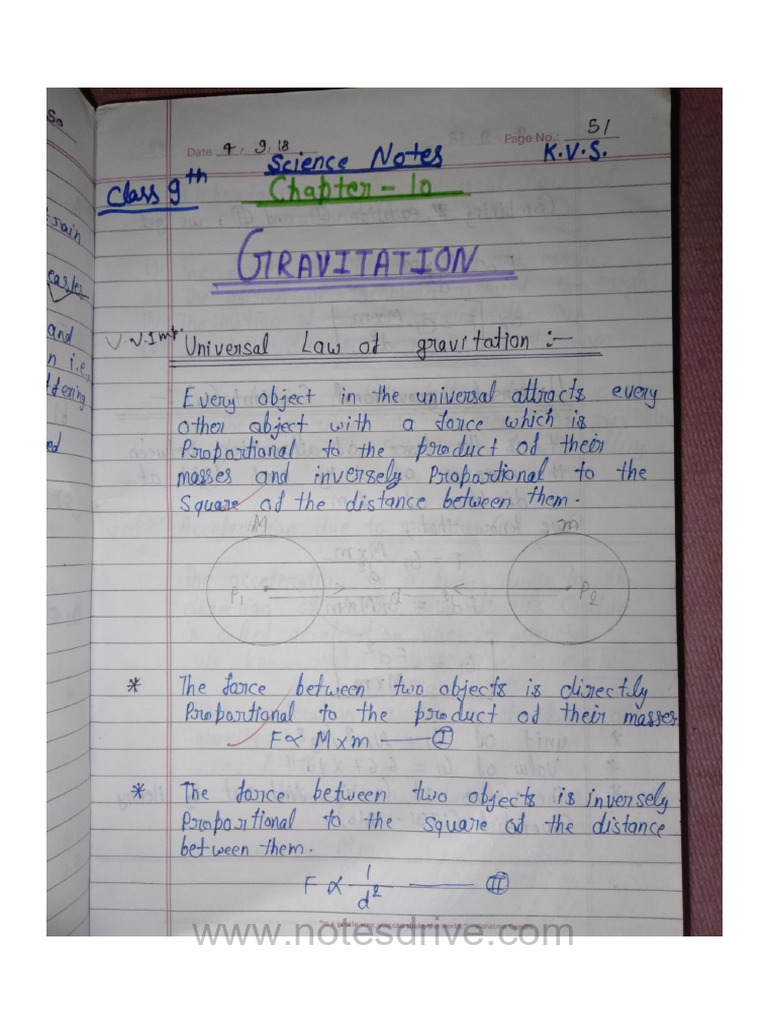 Date 4, 9, 18
Page No.: 51
Science Notes
K.V.S.
Class 9th
Chapter - 10
GRAVITATION
V.V.Imp.
Universal Law of gravitation :-
Every object in the universal attracts every
other object with a force which is
Proportional to the product of their
masses and inversely Proportional to the
Square of the distance between them.
M m
P1 d P2
* The force between two objects is directly
Proportional to the product of their masses
F∝ M×m —— I
* The force between two objects is inversely
Proportional to the square of the distance
between them.
F ∝ 1/d² —— II
www.notesdrive.com
So
rain
and
n i.e.
ttering
ed